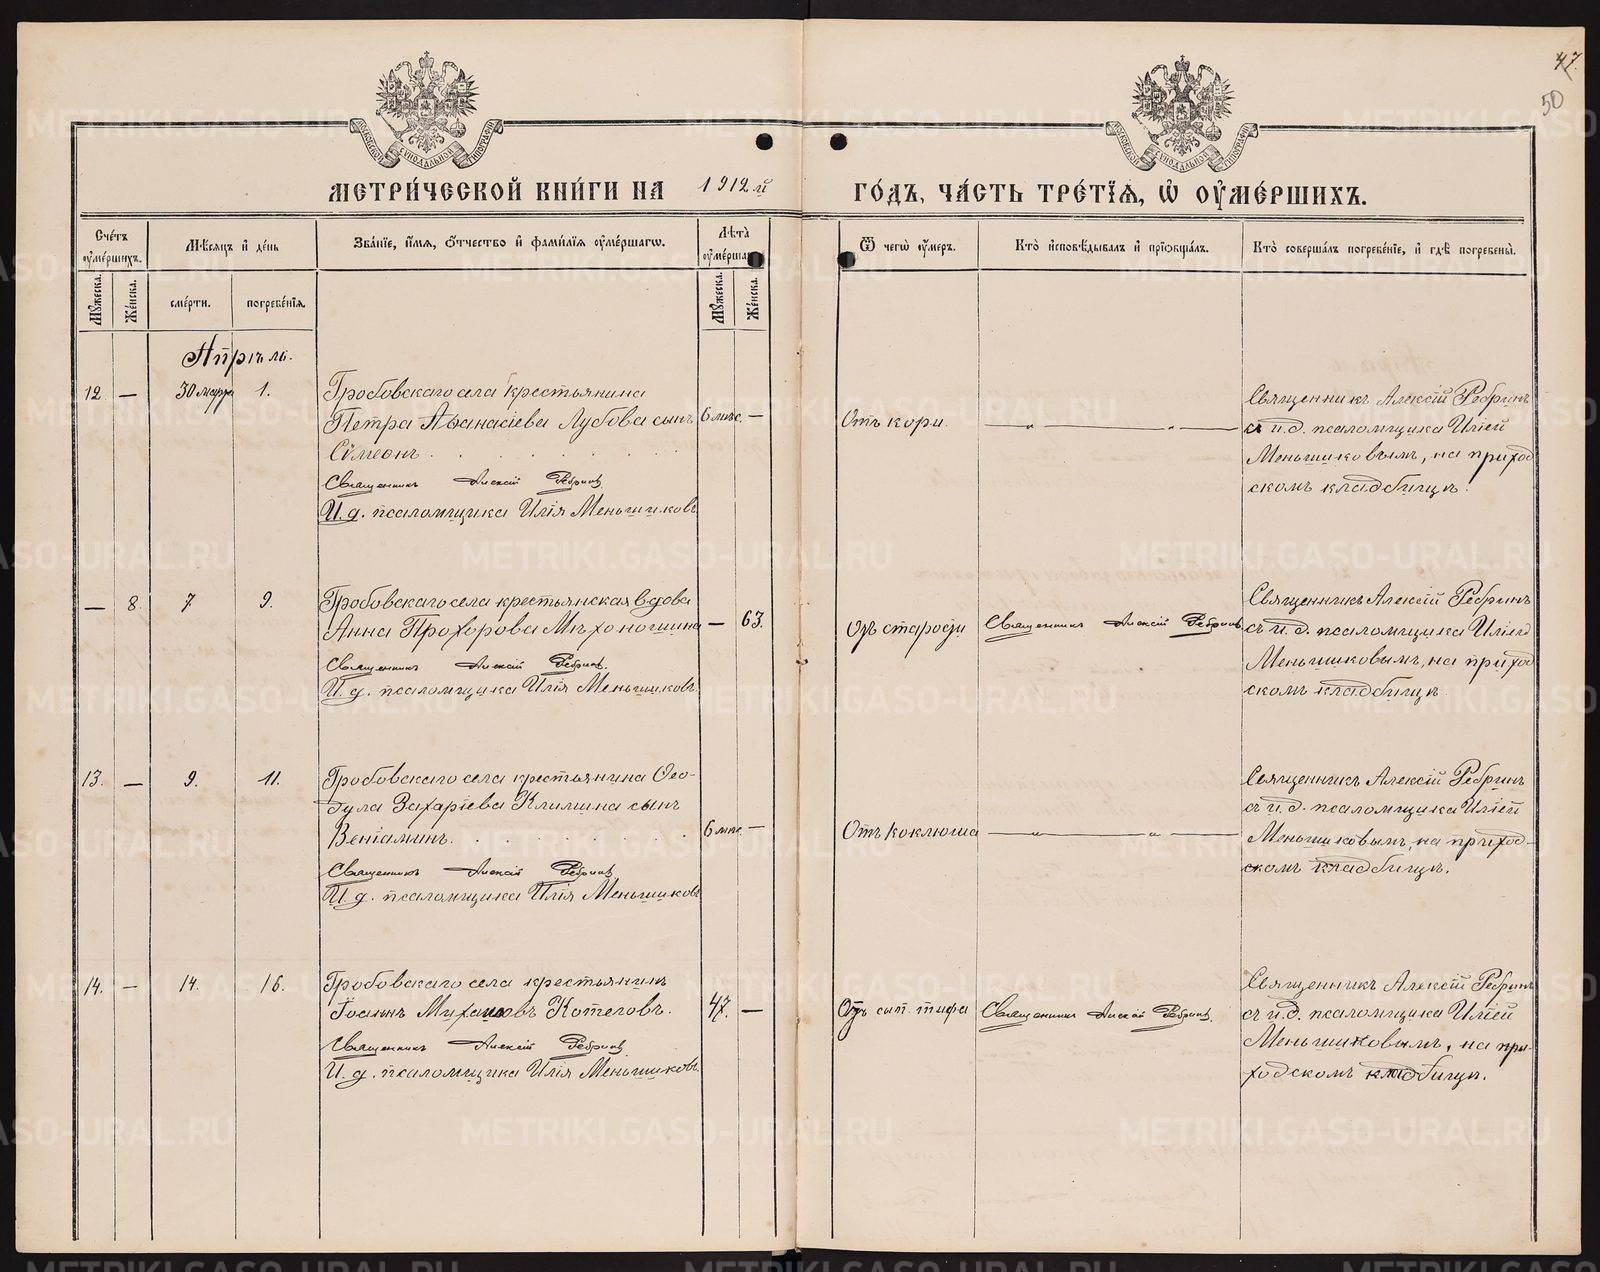 47.
50
МОСКОВСКОЙ СѴНОДАЛЬНОЙ ТИПОГРАФІИ
МОСКОВСКОЙ СѴНОДАЛЬНОЙ ТИПОГРАФІИ
МЕТРИ́ЧЕСКОЙ КНИ́ГИ НА 1912 й
ГО́ДЪ, ЧА́СТЬ ТРЕ́ТЇѦ, Ѡ҆ ОУ҆МЕ́РШИХЪ.
Сче́тъ оу҆ме́ршихъ.
Мѣ́сяцъ и҆ де́нь
Зва́нїе, и҆́мя, ѻ҆́тчество и҆ фами́лїя оу҆ме́ршагѡ.
Лѣ́та оу҆ме́ршагѡ
Ѿ чегѡ̀ оу҆́меръ.
Кто̀ и҆сповѣ́дывалъ и҆ прїѡбща́лъ.
Кто̀ соверша́лъ погребе́нїе, и҆ гдѣ̀ погребены̀.
Мꙋ́жеска.
Же́нска.
сме́рти.
погребе́нїя.
Мꙋ́жеска.
Же́нска.
Апрѣль.
12. — 30 марта 1.
Гробовскаго села крестьянина
Петра Аѳанасіева Лубова сынъ
Сѷмеонъ . . . . . .
6 мѣс. —
Священникъ Алексій Ребринъ
И. д. псаломщика Илія Меньшиковъ.
Отъ кори.
— „ — „ —
Священникъ Алексій Ребринъ
съ и. д. псаломщика Иліей
Меньшиковымъ, на приход
скомъ кладбищѣ.
— 8. 7 9.
Гробовскаго села крестьянская вдова
Анна Прохорова Мѣхоношина
— 63.
Священникъ Алексій Ребринъ.
И. д. псаломщика Илія Меньшиковъ.
Отъ старости
Священникъ Алексій Ребринъ
Священникъ Алексій Ребринъ
съ и. д. псаломщика Иліей
Меньшиковымъ, на приход
скомъ кладбищѣ.
13. — 9. 11.
Гробовскаго села крестьянина Ѳео-
дула Захаріева Климина сынъ
Веніаминъ. . . . . . .
6 мѣс. —
Священникъ Алексій Ребринъ
И. д. псаломщика Илія Меньшиковъ
Отъ коклюша
— „ — „ —
Священникъ Алексій Ребринъ
съ и. д. псаломщика Иліей
Меньшиковымъ, на приход-
скомъ кладбищѣ.
14. — 14. 16.
Гробовскаго села крестьянинъ
Іоаннъ Михаиловъ Котеговъ.
47. —
Священникъ Алексій Ребринъ
И. д. псаломщика Илія Меньшиковъ.
Отъ сып. тифа
Священникъ Алексій Ребринъ.
Священникъ Алексій Ребринъ
съ и. д. псаломщика Иліей
Меньшиковымъ, на при-
ходскомъ кладбищѣ.
METRIKI.GASO-URAL.RU